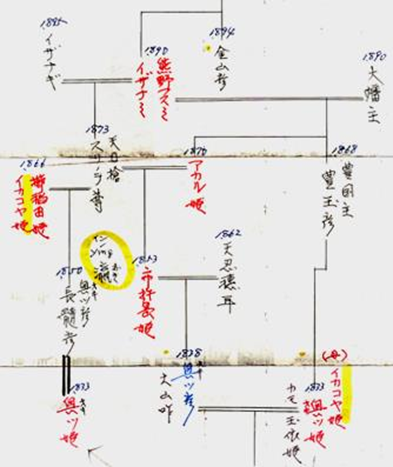 1895
イザナギ
1890
熊野フスミ
イザナミ
1894
金山彦
1890
大幡主
1873
スサノヲ尊
天日槍
1875
アカル姫
1868
豊国主
豊玉彦
1866
櫛稲田姫
イカコヤ姫
1850
奥ツ彦
長髄彦
1853
市杵島姫
1862
天忍穂耳
1833
奥ツ姫
1838
奥ツ彦
大山咋
1833
奥ツ姫
カモ玉依姫
(母)
イカコヤ姫